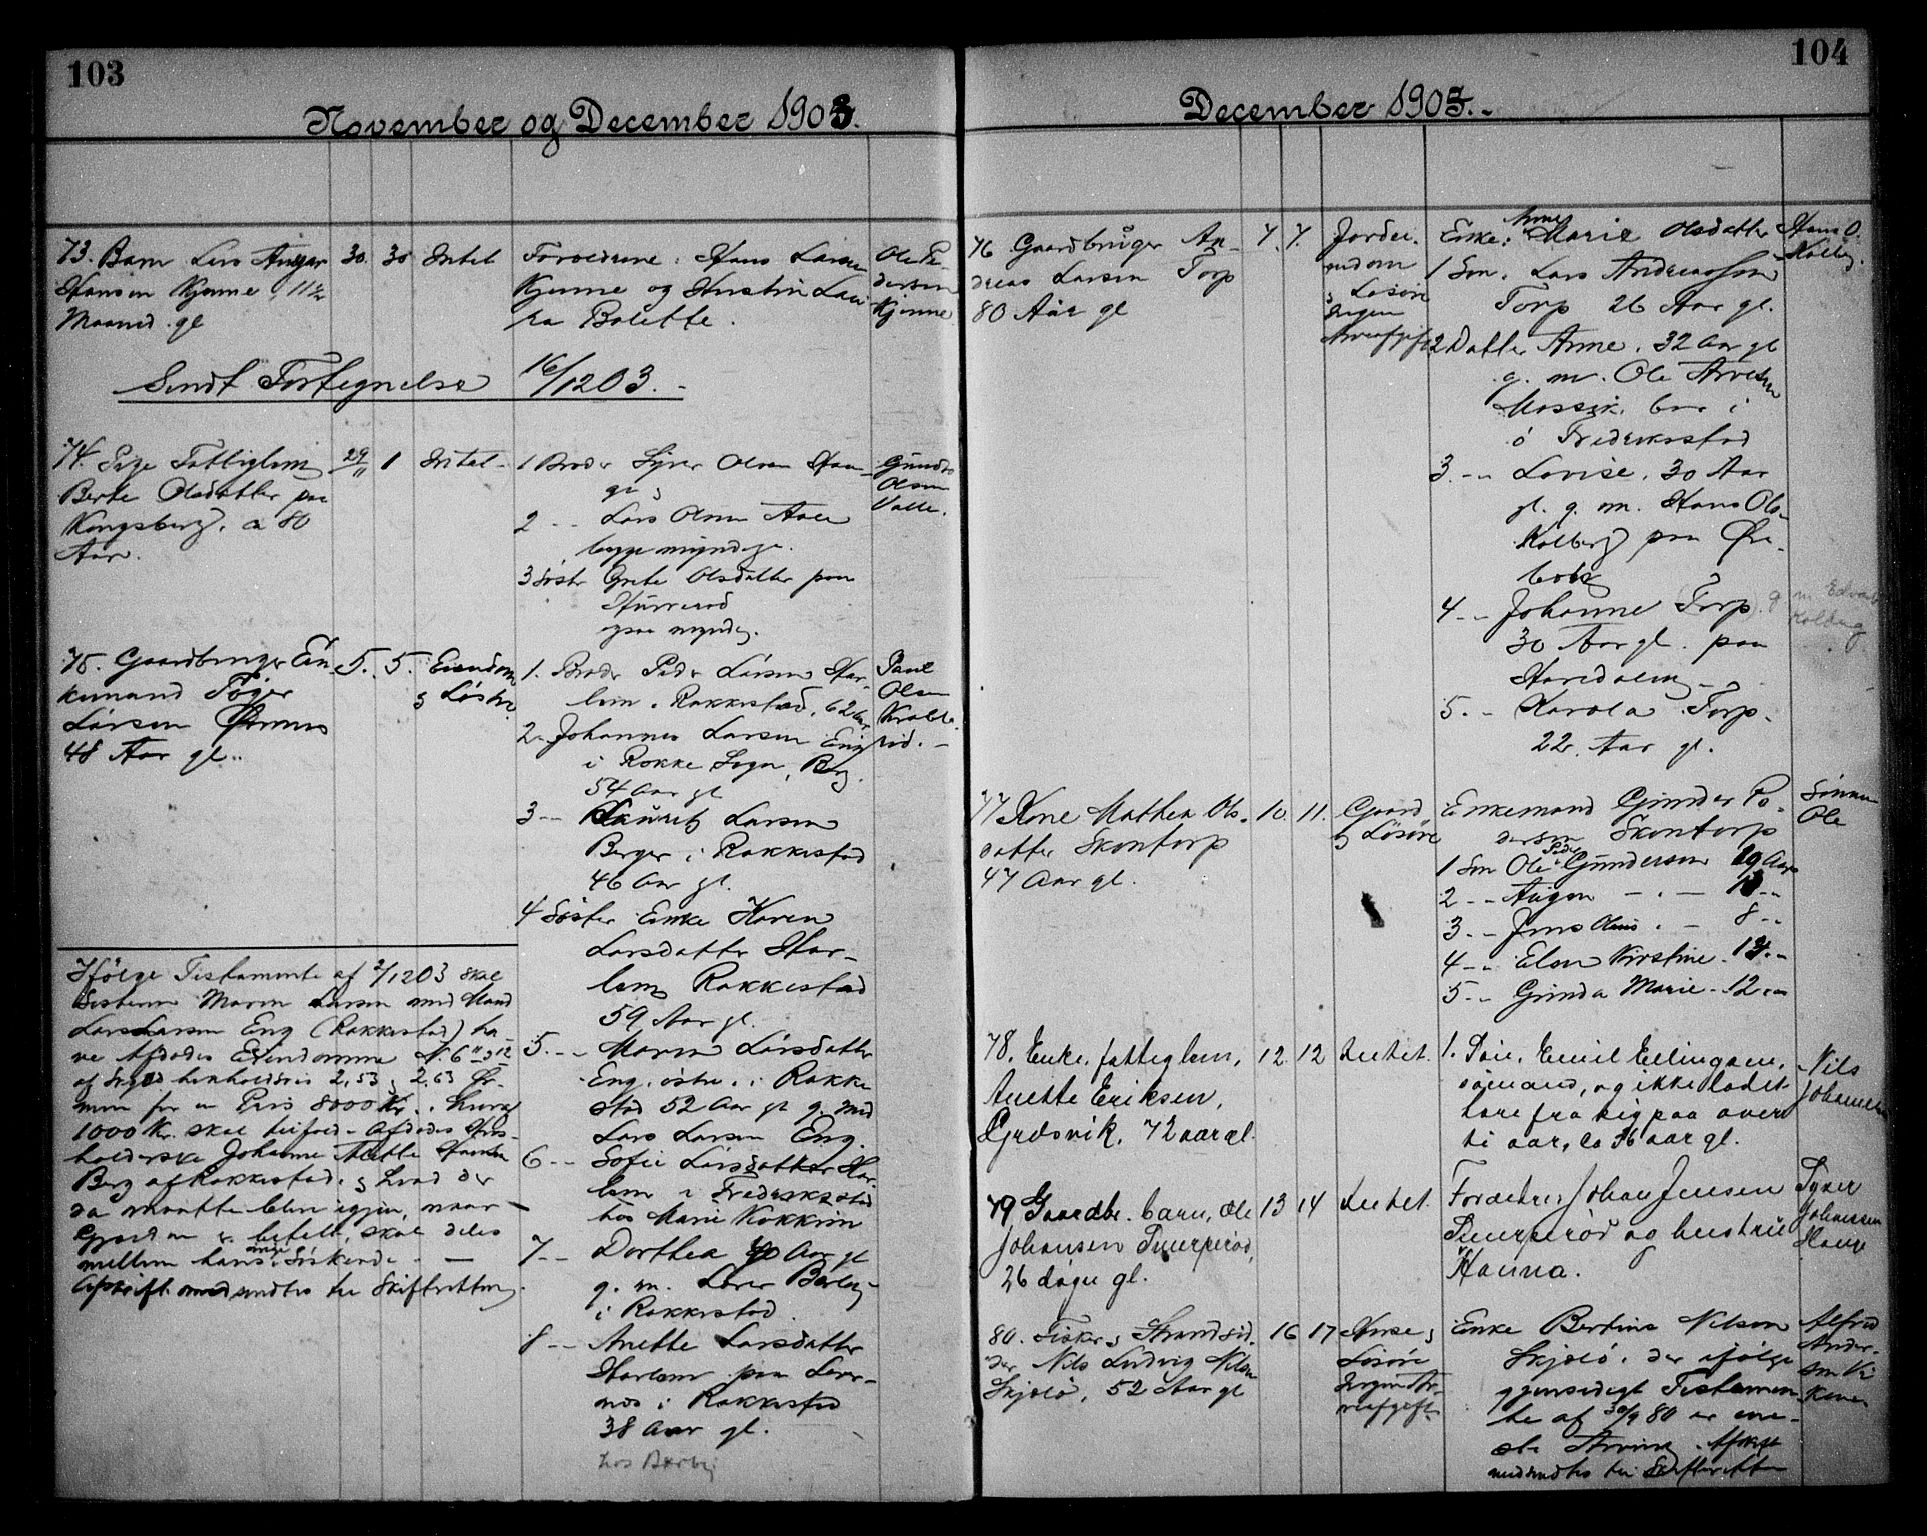 103
November og December 1903.
73. Barn Lars Ansgar
Hansen Kjenne, 11½
Maaned gl
30. 30 Intet
Forældrene: Hans Larsen
Kjenne og Hustru Lau-
ra Bolette.
Ole Pe-
dersen
Kjenne
Sendt Fortegnelse 16/12 03.-
74. Pige Fattiglem
Berte Olsdatter paa
Kongsberg. a 80
Aar.
29/11 1 Intet-
1 Broder Syver Olsen Hau-
ge,
2 -- Lars Olsen
begge myndige.
3 Søster Grete Olsdatter paa
ogsaa myndig.
Olsen
Valle.
75. Gaardbruger En-
kemand
Larsen
48 Aar gl.
5. 5. Eiendom
& Løsøre.
1. Broder Peder Larsen Har-
lem, Rakkestad, 62 Aar
2- Johannes Larsen Eng
i Rokke Sogn, Berg.
54 Aar gl
3 -- Laurits Larsen
Berger i Rakkestad
46 Aar gl.
4 Søster Enke Karen
Larsdatter Har-
lem, Rakkestad
59 Aar gl.
5. -- Maren Larsdatter
Eng, østre, i Rakke
stad 52 Aar gl g. med
Lars Larsen Eng.
6 -- Sofie Larsdatter Har-
lem i Fredrikstad
hos Marie
7 -- Dorthea 40 Aar gl
g. m.
i Rakkestad
8 -- Anette Larsdatter
Harlem paa
i Rakkestad
38 Aar gl.
hos
Paul
Olsen
Ifølge Testamente af 2/12 03 skal
Søsteren Maren Larsen med Mand
Lars Larsen Eng (Rakkestad) ha-
ve Afdødes Eiendomme N. 6
af Skyld henholdsvis 2,53 & 2,63
for en Pris 8000 Kr. hvoraf
1000 Kr. skal tilfalde Afdødes Hus-
holderske Johanne Mette Hansen
Berg af Rakkestad, & hvad der
da maatte blive igjen, naar
Gjælden er betalt, skal deles
mellem hans øvrige Søskende.-
Afskrift medsendtes til Skifteretten.
104
December 1903.-
76 Gaardbruger An-
dreas Larsen Torp
80 Aar gl
7. 7. Jordei-
endom
& Løsøre
Ingen
Arveafgift
Enke: Anne Marie Olsdatter
1 Søn. Lars Andreassen
Torp 26 Aar gl.
2 Datter Anne, 32 Aar gl
g. m. Ole Arvesen
bor i
Fredrikstad
3.-- Lovise, 30 Aar
gl. g. m. Hans Ols.
Kolberg paa Øre-
bæk
4 -- Johanne (Torp). g m Edvard
Kolberg
30 Aar gl. paa
5.- Karola Torp.
22, Aar gl.
Hans O.
Kolberg.
77 Kone Mathea Ols-
datter Skontorp
47 Aar gl.
10. 11. Gaard
& Løsøre
Enkemand Gunder Pe-
dersen Skontorp
1 Søn Ole Peder Gundersen 19 Aar
2 -- August -.-
3.-- Jens . - 8 --
4 -- Elen Kirstine -
5 -- Gunda Marie - 12 --
Sønnen
Ole
78. Enke, fattiglem,
Anette Eriksen,
Gresvik, 72 aar gl.
12 12 Intet.
1. Søn, Emil Ellingsen,
sømand, og ikke ladet
høre fra sig paa over
ti aar, ca 36 aar gl.
Nils
Johansen
79 Gaardbr. barn, Ole
Johansen
26 dage gl.
13 14 Intet.
Forældre Johan Jensen
og hustru
Hanna.
Johansen
Hauge
80. Fisker & Strandsid-
der Nils Ludvig Nilsen
Skjælø, 52 Aar gl
16 17 Huse &
Løsøre
Ingen Ar-
veafgift.
Enke Bertine Nilsen
Skjælø, der ifølge
gjensidigt Testamen-
te af 30/9 80 er ene-
ste Arving. Afskrift
medsendtes til Skifteretten
Alfred
Ander-
sen Vi
kane